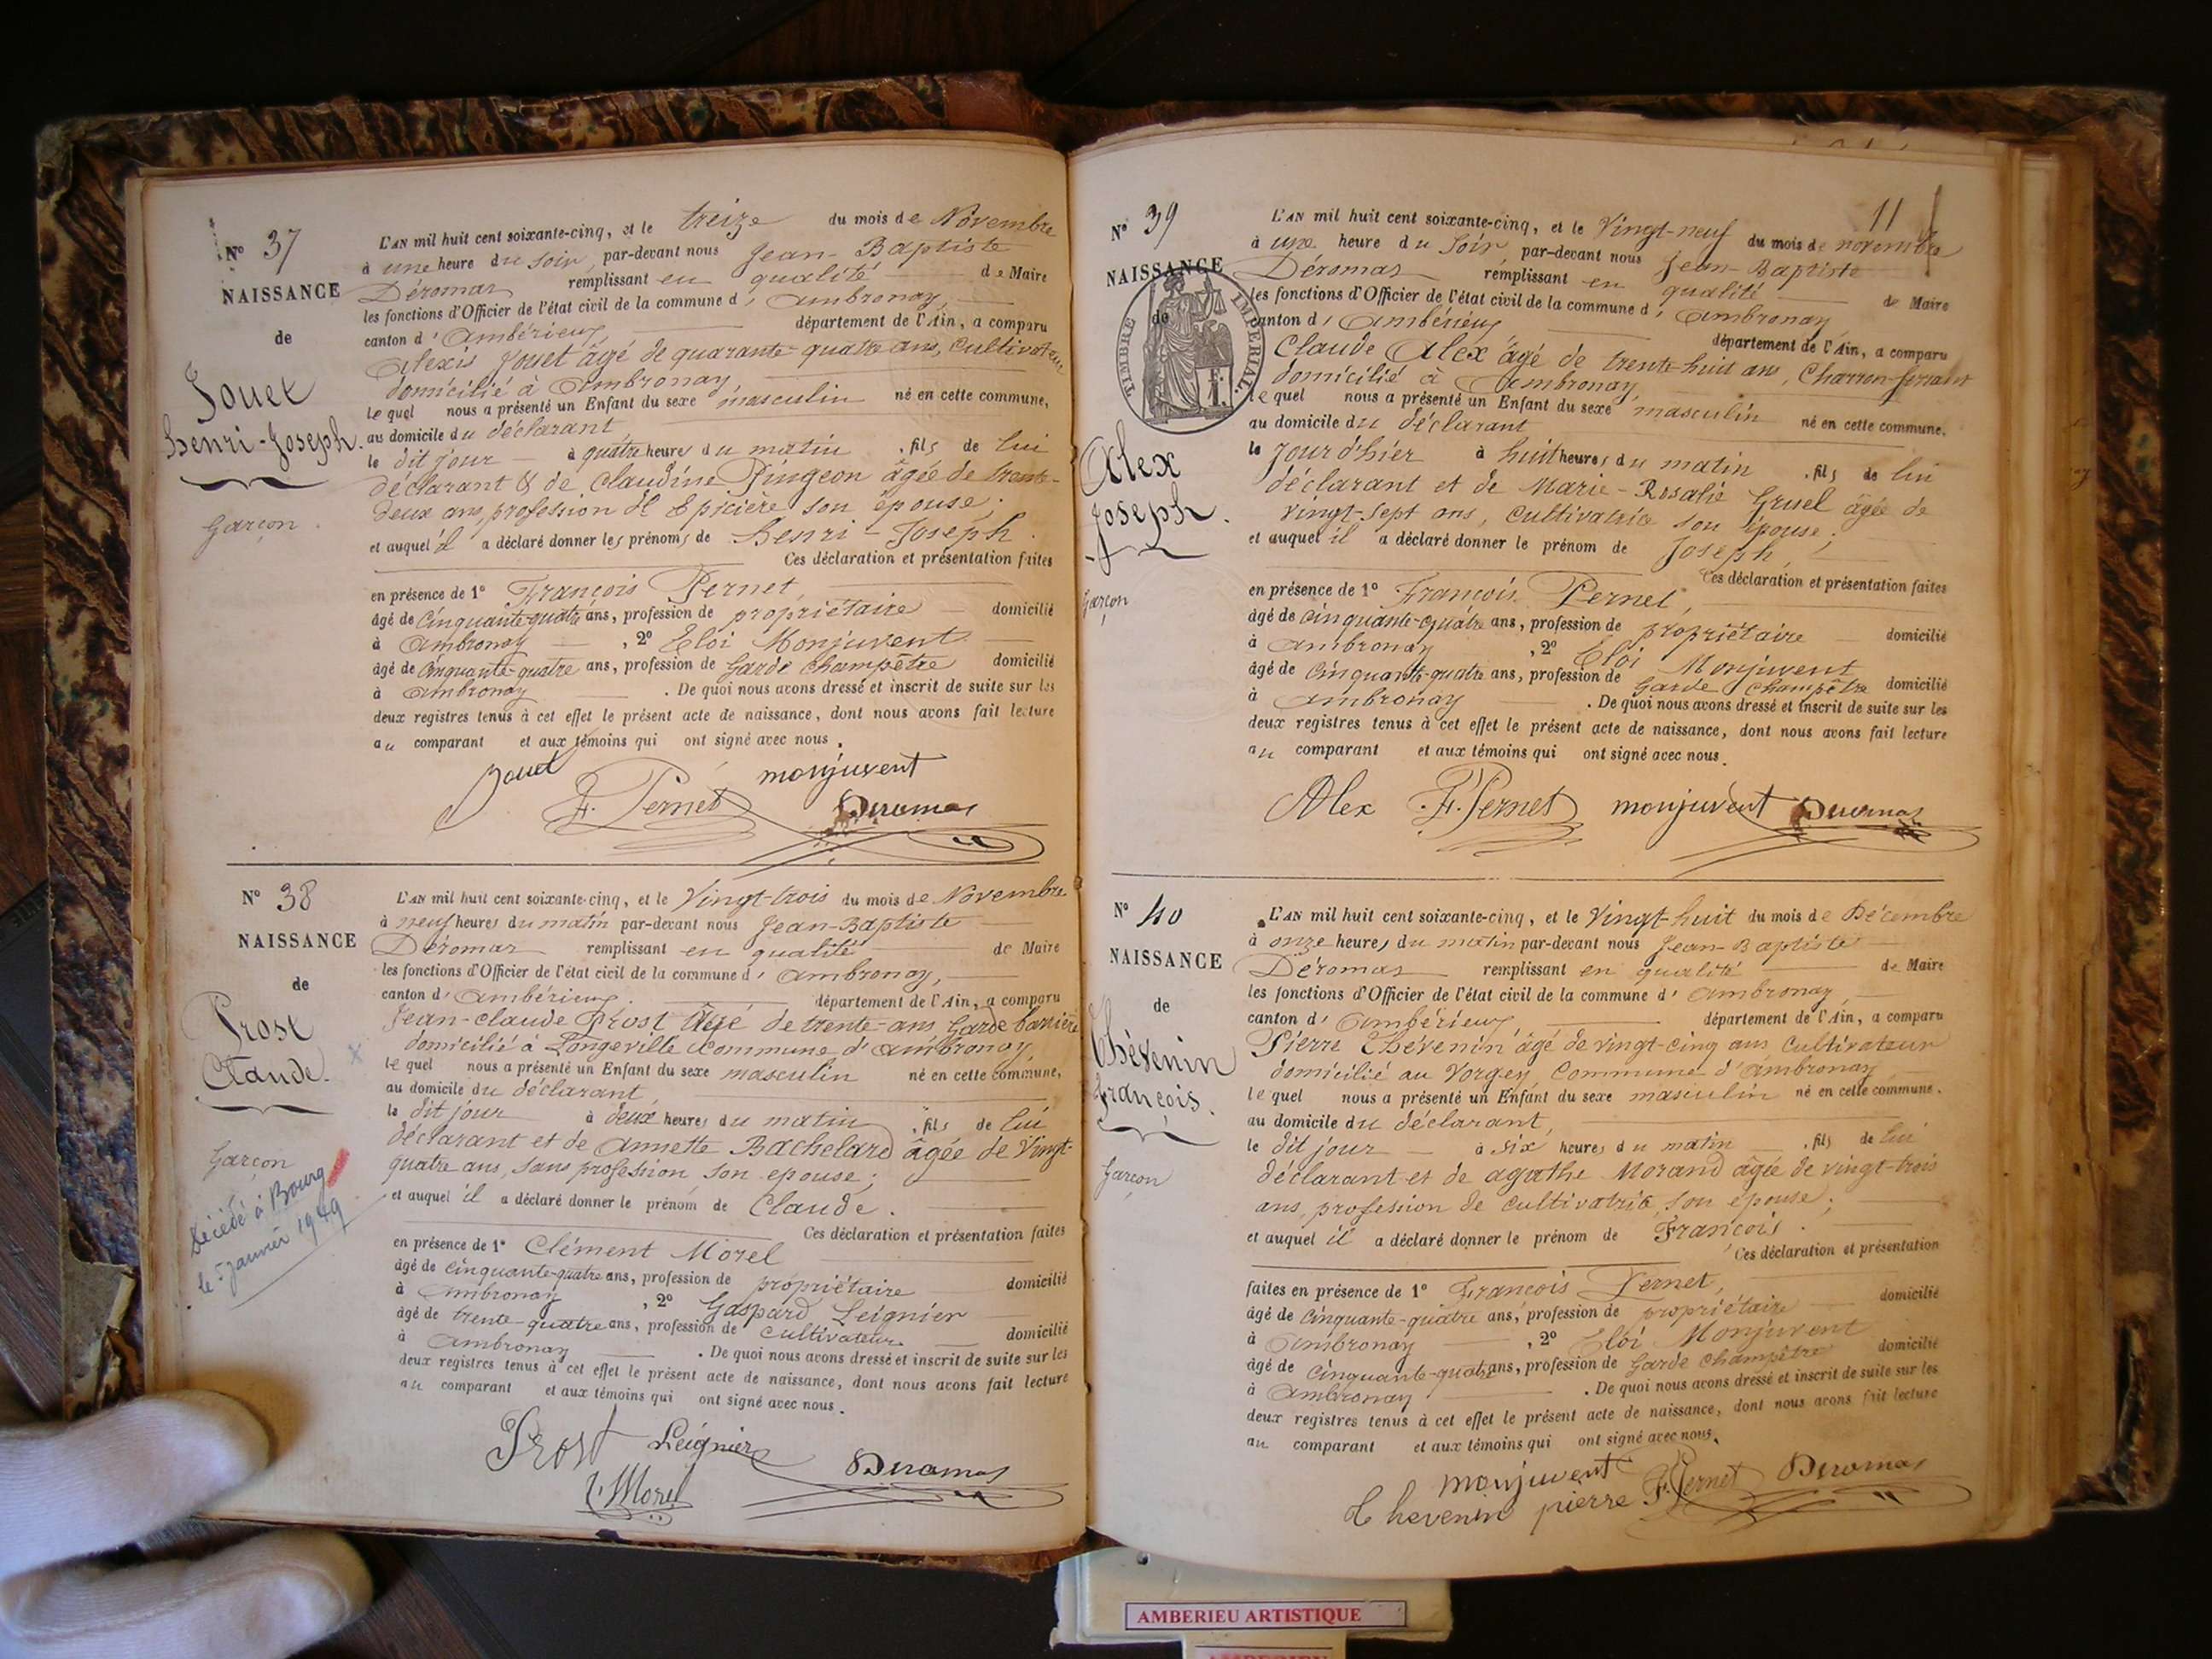 N° 37
NAISSANCE
de
Jouet
henri-Joseph.
Garçon.
L'AN mil huit cent soixante-cinq, et le treize du mois de Novembre
à une heure du soir, par-devant nous Jean-Baptiste
Déromas remplissant en qualité de Maire
les fonctions d'Officier de l'état civil de la commune d'Ambronay,
canton d'Ambérieux, département de l'Ain, a comparu
Alexis Jouet âgé de quarante-quatre ans, Cultivateur
domicilié à Ambronay,
lequel nous a présenté un Enfant du sexe masculin né en cette commune,
au domicile du déclarant
le dit jour à quatre heures du matin, fils de lui
déclarant & de Claudine Pingeon âgée de trente-
deux ans, profession d'Epicière son épouse;
et auquel il a déclaré donner les prénoms de henri-Joseph.
Ces déclaration et présentation faites
en présence de 1° François Pernet,
âgé de Cinquante-quatre ans, profession de propriétaire domicilié
à Ambronay, 2° Eloi Monjuvent
âgé de Cinquante-quatre ans, profession de Garde Champêtre domicilié
à Ambronay. De quoi nous avons dressé et inscrit de suite sur les
deux registres tenus à cet effet le présent acte de naissance, dont nous avons fait lecture
au comparant et aux témoins qui ont signé avec nous.
Jouet F. Pernet monjuvent Deromas
N° 38
NAISSANCE
de
Prost
Claude.
Garçon
Décédé à Bourg
le 5 janvier 1949
L'AN mil huit cent soixante-cinq, et le Vingt-trois du mois de Novembre
à neuf heures du matin par-devant nous Jean-Baptiste
Déromas remplissant en qualité de Maire
les fonctions d'Officier de l'état civil de la commune d'Ambronay,
canton d'Ambérieux. département de l'Ain, a comparu
Jean-Claude Prost Agé de trente-ans Garde barrière
domicilié à Longeville Commune d'Ambronay,
lequel nous a présenté un Enfant du sexe masculin né en cette commune,
au domicile du déclarant
le dit jour à deux heures du matin, fils de lui
déclarant et de Annette Bachelard âgée de Vingt-
quatre ans, sans profession son epouse;
et auquel il a déclaré donner le prénom de Claude.
Ces déclaration et présentation faites
en présence de 1° Clément Morel
âgé de Cinquante-quatre ans, profession de propriétaire domicilié
à Ambronay, 2° Gaspard Leignier
âgé de trente-quatre ans, profession de Cultivateur domicilié
à Ambronay. De quoi nous avons dressé et inscrit de suite sur les
deux registres tenus à cet effet le présent acte de naissance, dont nous avons fait lecture
au comparant et aux témoins qui ont signé avec nous.
Prost Leignier Deromas
Morel
11
N° 39
NAISSANCE
de
TIMBRE IMPERIAL.
Alex
Joseph.
Garçon
L'AN mil huit cent soixante-cinq, et le Vingt-neuf du mois de novembre
à une heure du Soir, par-devant nous Jean-Baptiste
Déromas remplissant en qualité de Maire
les fonctions d'Officier de l'état civil de la commune d'Ambronay
canton d'Ambérieux département de l'Ain, a comparu
Claude Alex âgé de trente-huit ans, Charron-ferrant
domicilié à Ambronay
lequel nous a présenté un Enfant du sexe masculin né en cette commune.
au domicile du déclarant
le Jour d'hier à huit heures du matin, fils de lui
déclarant et de Marie-Rosalie Gruel âgée de
vingt-sept ans, Cultivatrice son épouse;
et auquel il a déclaré donner le prénom de Joseph
Ces déclaration et présentation faites
en présence de 1° François Pernet,
âgé de cinquante-quatre ans, profession de propriétaire domicilié
à Ambronay, 2° Eloi Monjuvent
âgé de Cinquante-quatre ans, profession de Garde Champêtre domicilié
à Ambronay. De quoi nous avons dressé et inscrit de suite sur les
deux registres tenus à cet effet le présent acte de naissance, dont nous avons fait lecture
au comparant et aux témoins qui ont signé avec nous.
Alex F. Pernet monjuvent Deromas
N° 40
NAISSANCE
de
Thévenin
François.
Garçon
L'AN mil huit cent soixante-cinq, et le Vingt-huit du mois de Décembre
à onze heures du matin par-devant nous Jean-Baptiste
Déromas remplissant en qualité de Maire
les fonctions d'Officier de l'état civil de la commune d'Ambronay
canton d'Ambérieux département de l'Ain, a comparu
Pierre Thévenin âgé de vingt-cinq ans Cultivateur
domicilié au Vorgey Commune d'Ambronay
lequel nous a présenté un Enfant du sexe masculin né en cette commune.
au domicile du déclarant,
le dit jour à six heures du matin, fils de lui
déclarant et de agathe Morand âgée de vingt-trois
ans, profession de Cultivatrice, son épouse;
et auquel il a déclaré donner le prénom de François.
Ces déclaration et présentation
faites en présence de 1° François Pernet,
âgé de Cinquante-quatre ans, profession de propriétaire domicilié
à Ambronay, 2° Eloi Monjuvent
âgé de Cinquante-quatre ans, profession de Garde champêtre domicilié
à Ambronay. De quoi nous avons dressé et inscrit de suite sur les
deux registres tenus à cet effet le présent acte de naissance, dont nous avons fait lecture
au comparant et aux témoins qui ont signé avec nous.
monjuvent F. Pernet Deromas
Thevenin pierre
AMBERIEU ARTISTIQUE